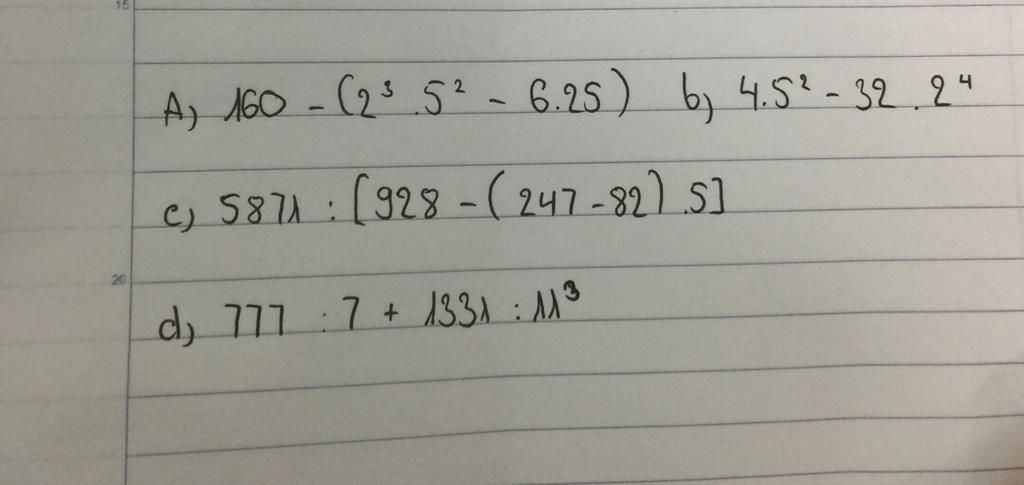 15
A) 160 - (2³ . 5² - 6.25) b) 4.5² - 32 . 2⁴
c) 5871 : [928 - (247 - 82) .5]
20
d) 777 : 7 + 1331 : 11³